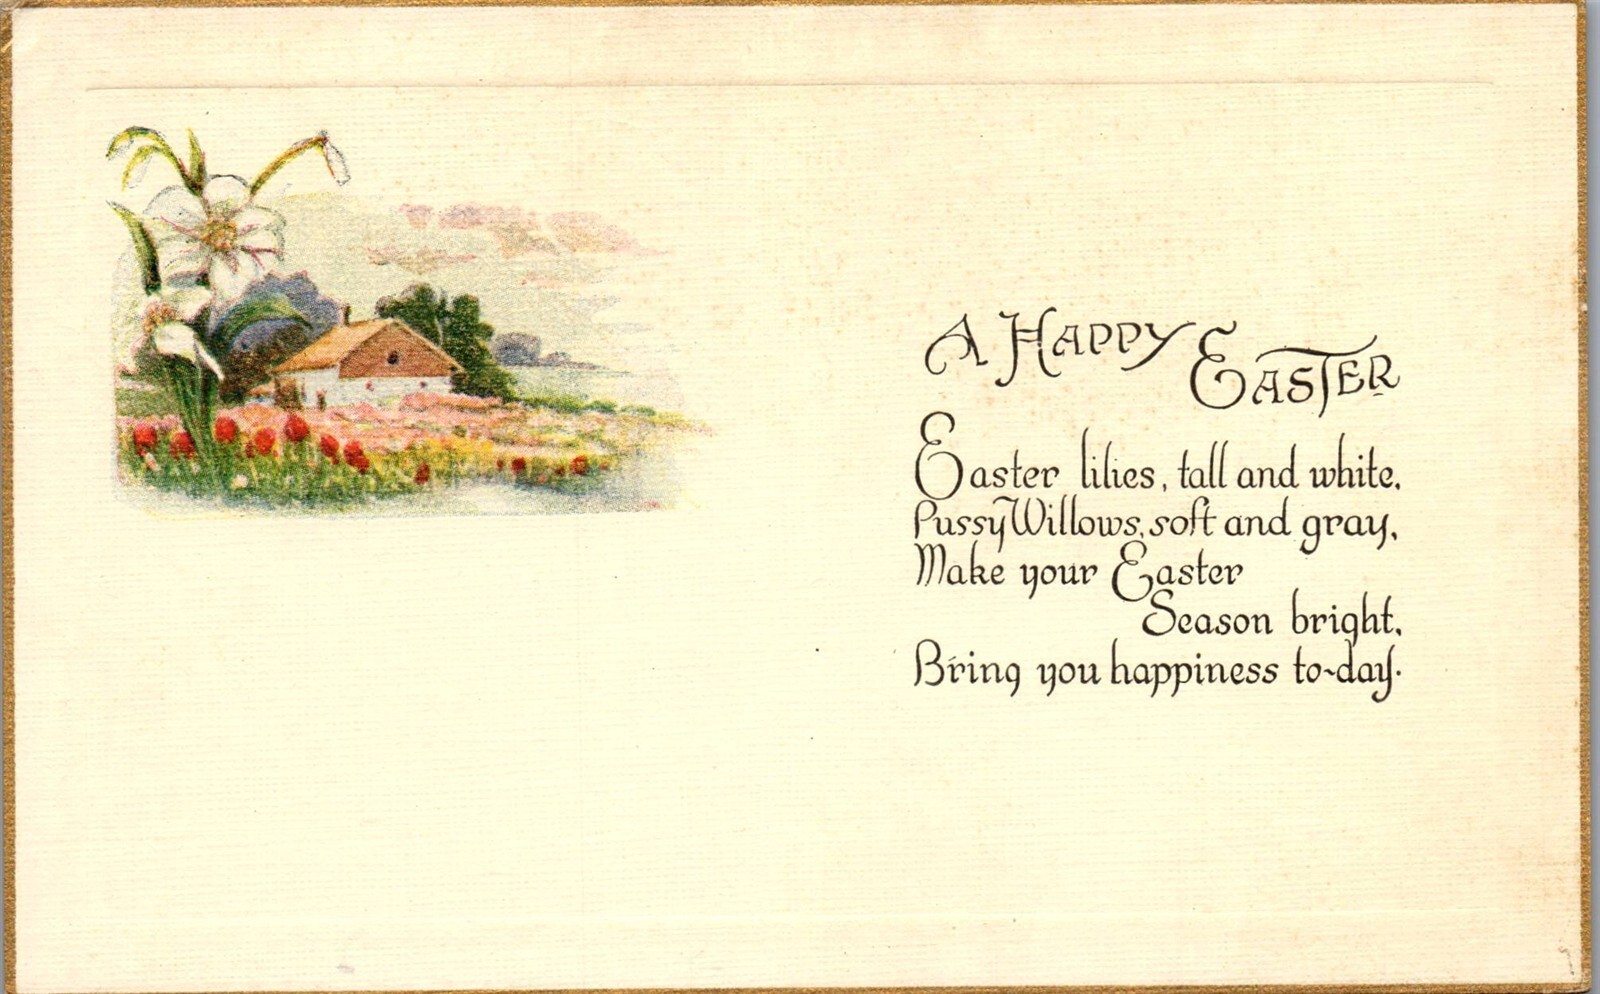 A HAPPY EASTER
Easter lilies, tall and white,
Pussy Willows, soft and gray,
Make your Easter
Season bright,
Bring you happiness to-day.